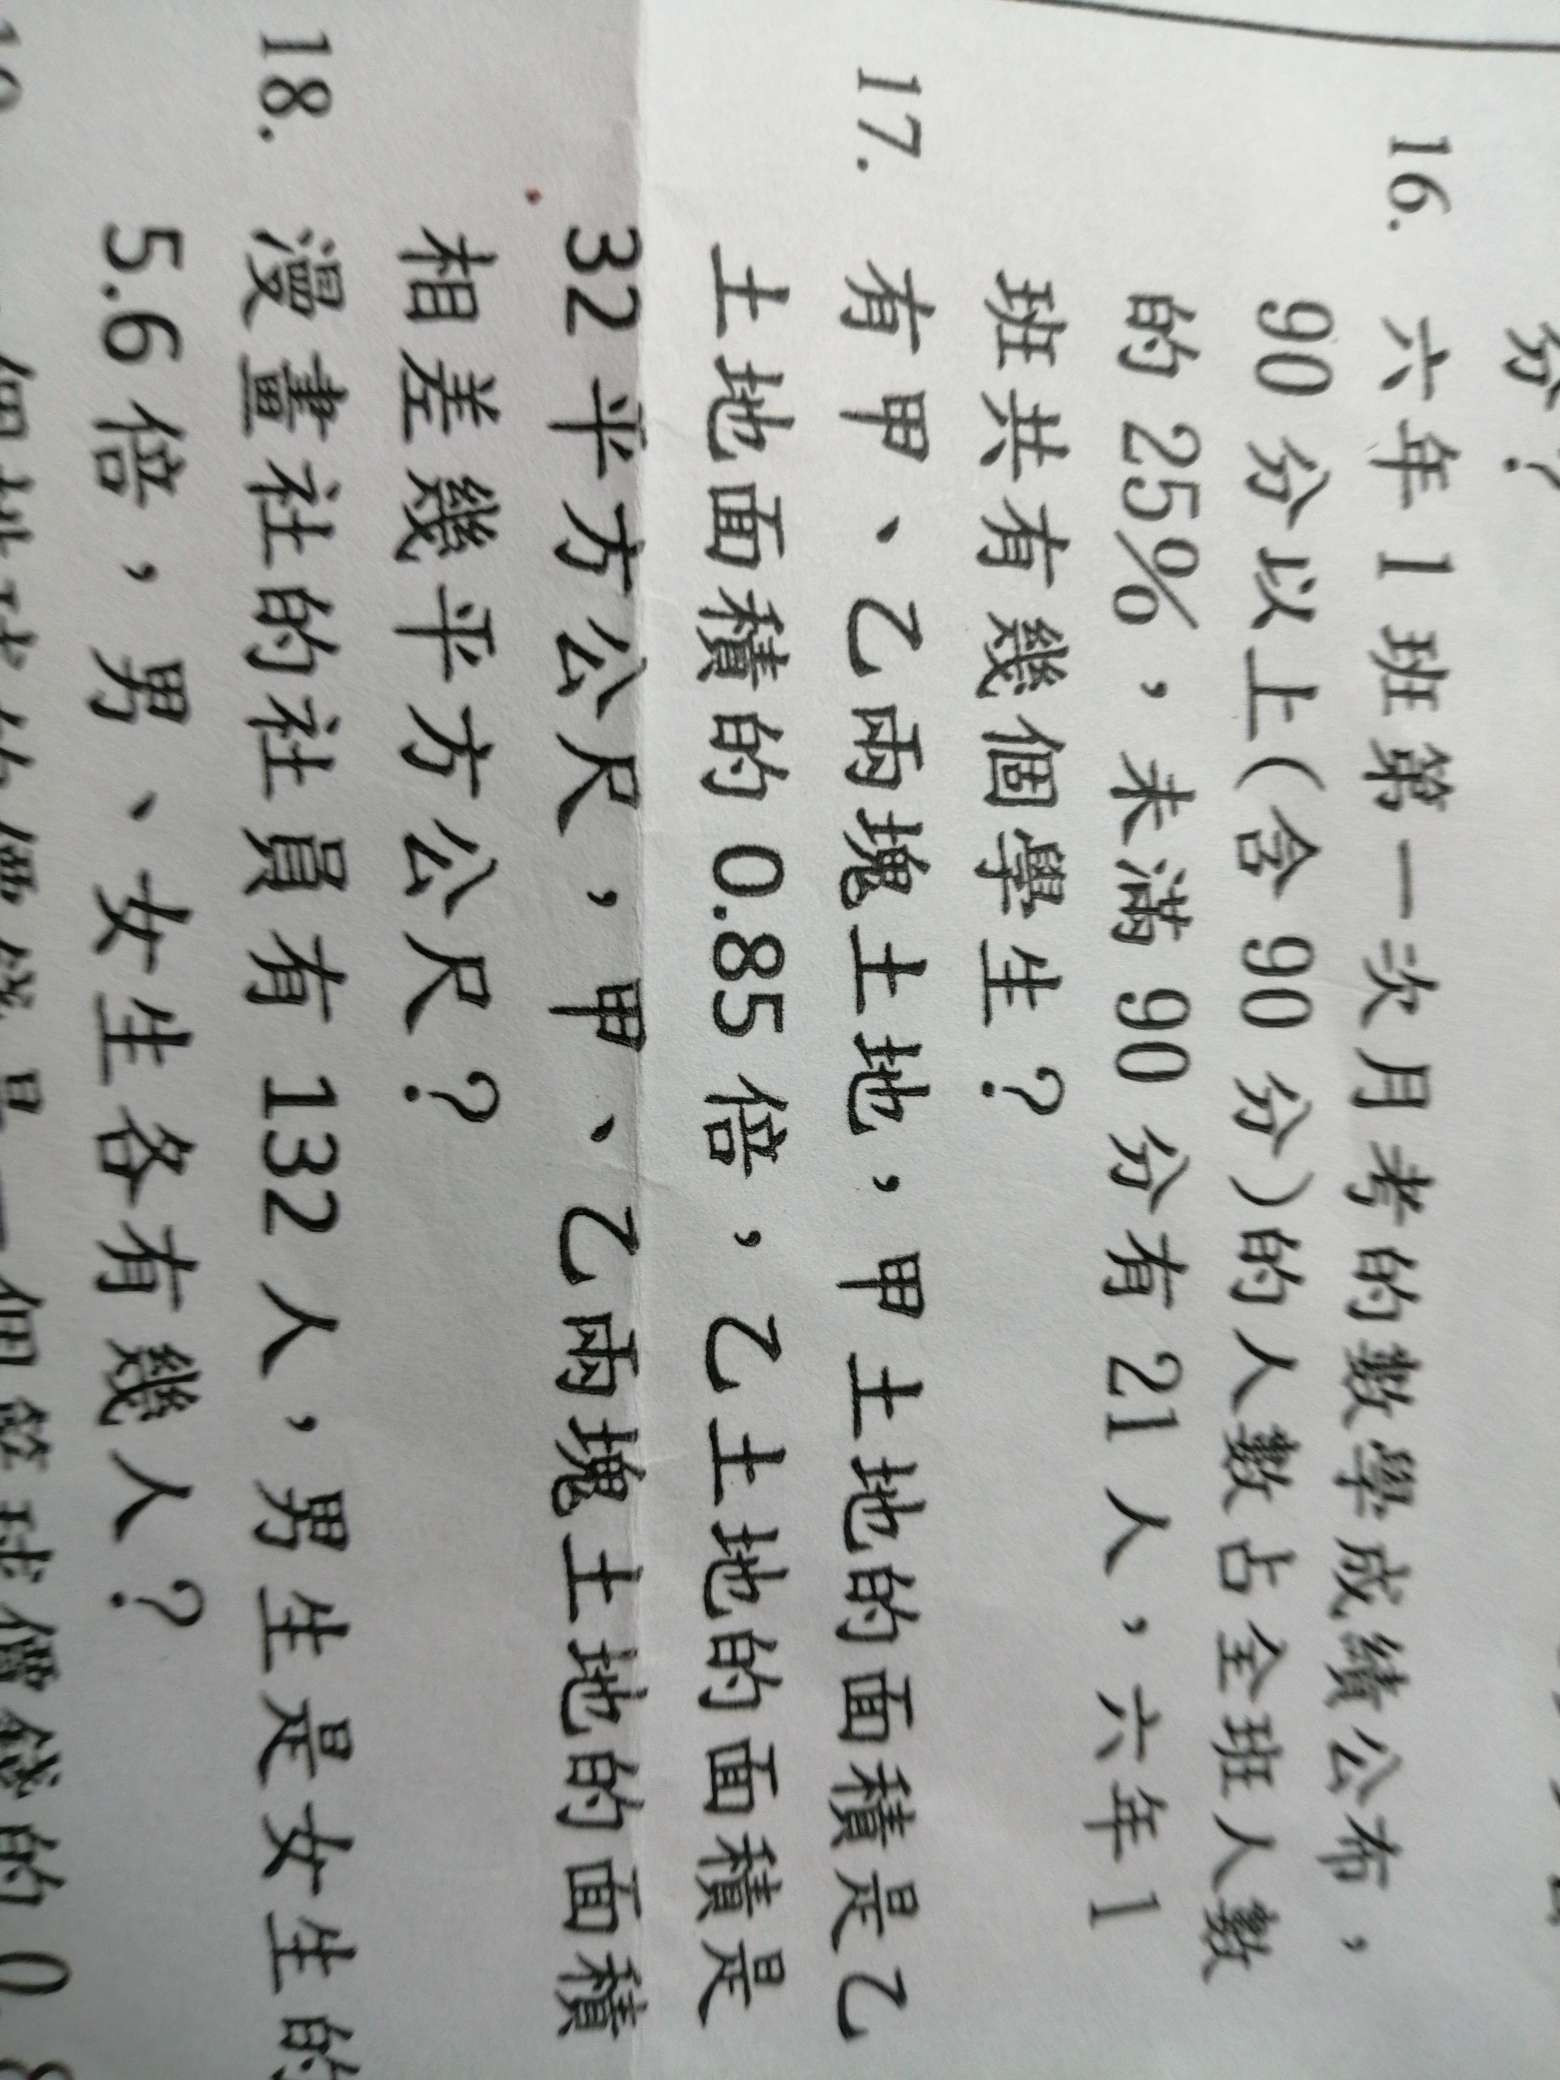 分？
16. 六年1班第一次月考的數學成績公布，
90分以上(含90分)的人數占全班人數
的25%，未滿90分有21人，六年1
班共有幾個學生？
17. 有甲、乙兩塊土地，甲土地的面積是乙
土地面積的0.85倍，乙土地的面積是
32平方公尺，甲、乙兩塊土地的面積
相差幾平方公尺？
18. 漫畫社的社員有132人，男生是女生的
5.6倍，男、女生各有幾人？